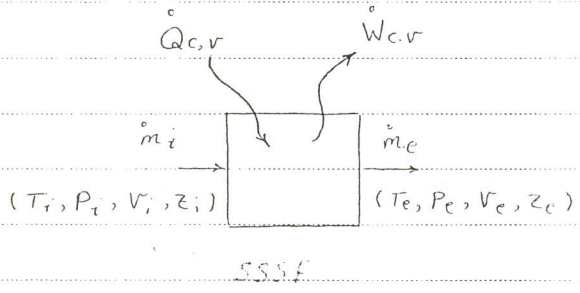 Q̊c.v W̊c.v
m̊i m̊e
(Ti, Pi, Vi, Zi) (Te, Pe, Ve, Ze)
SSSF